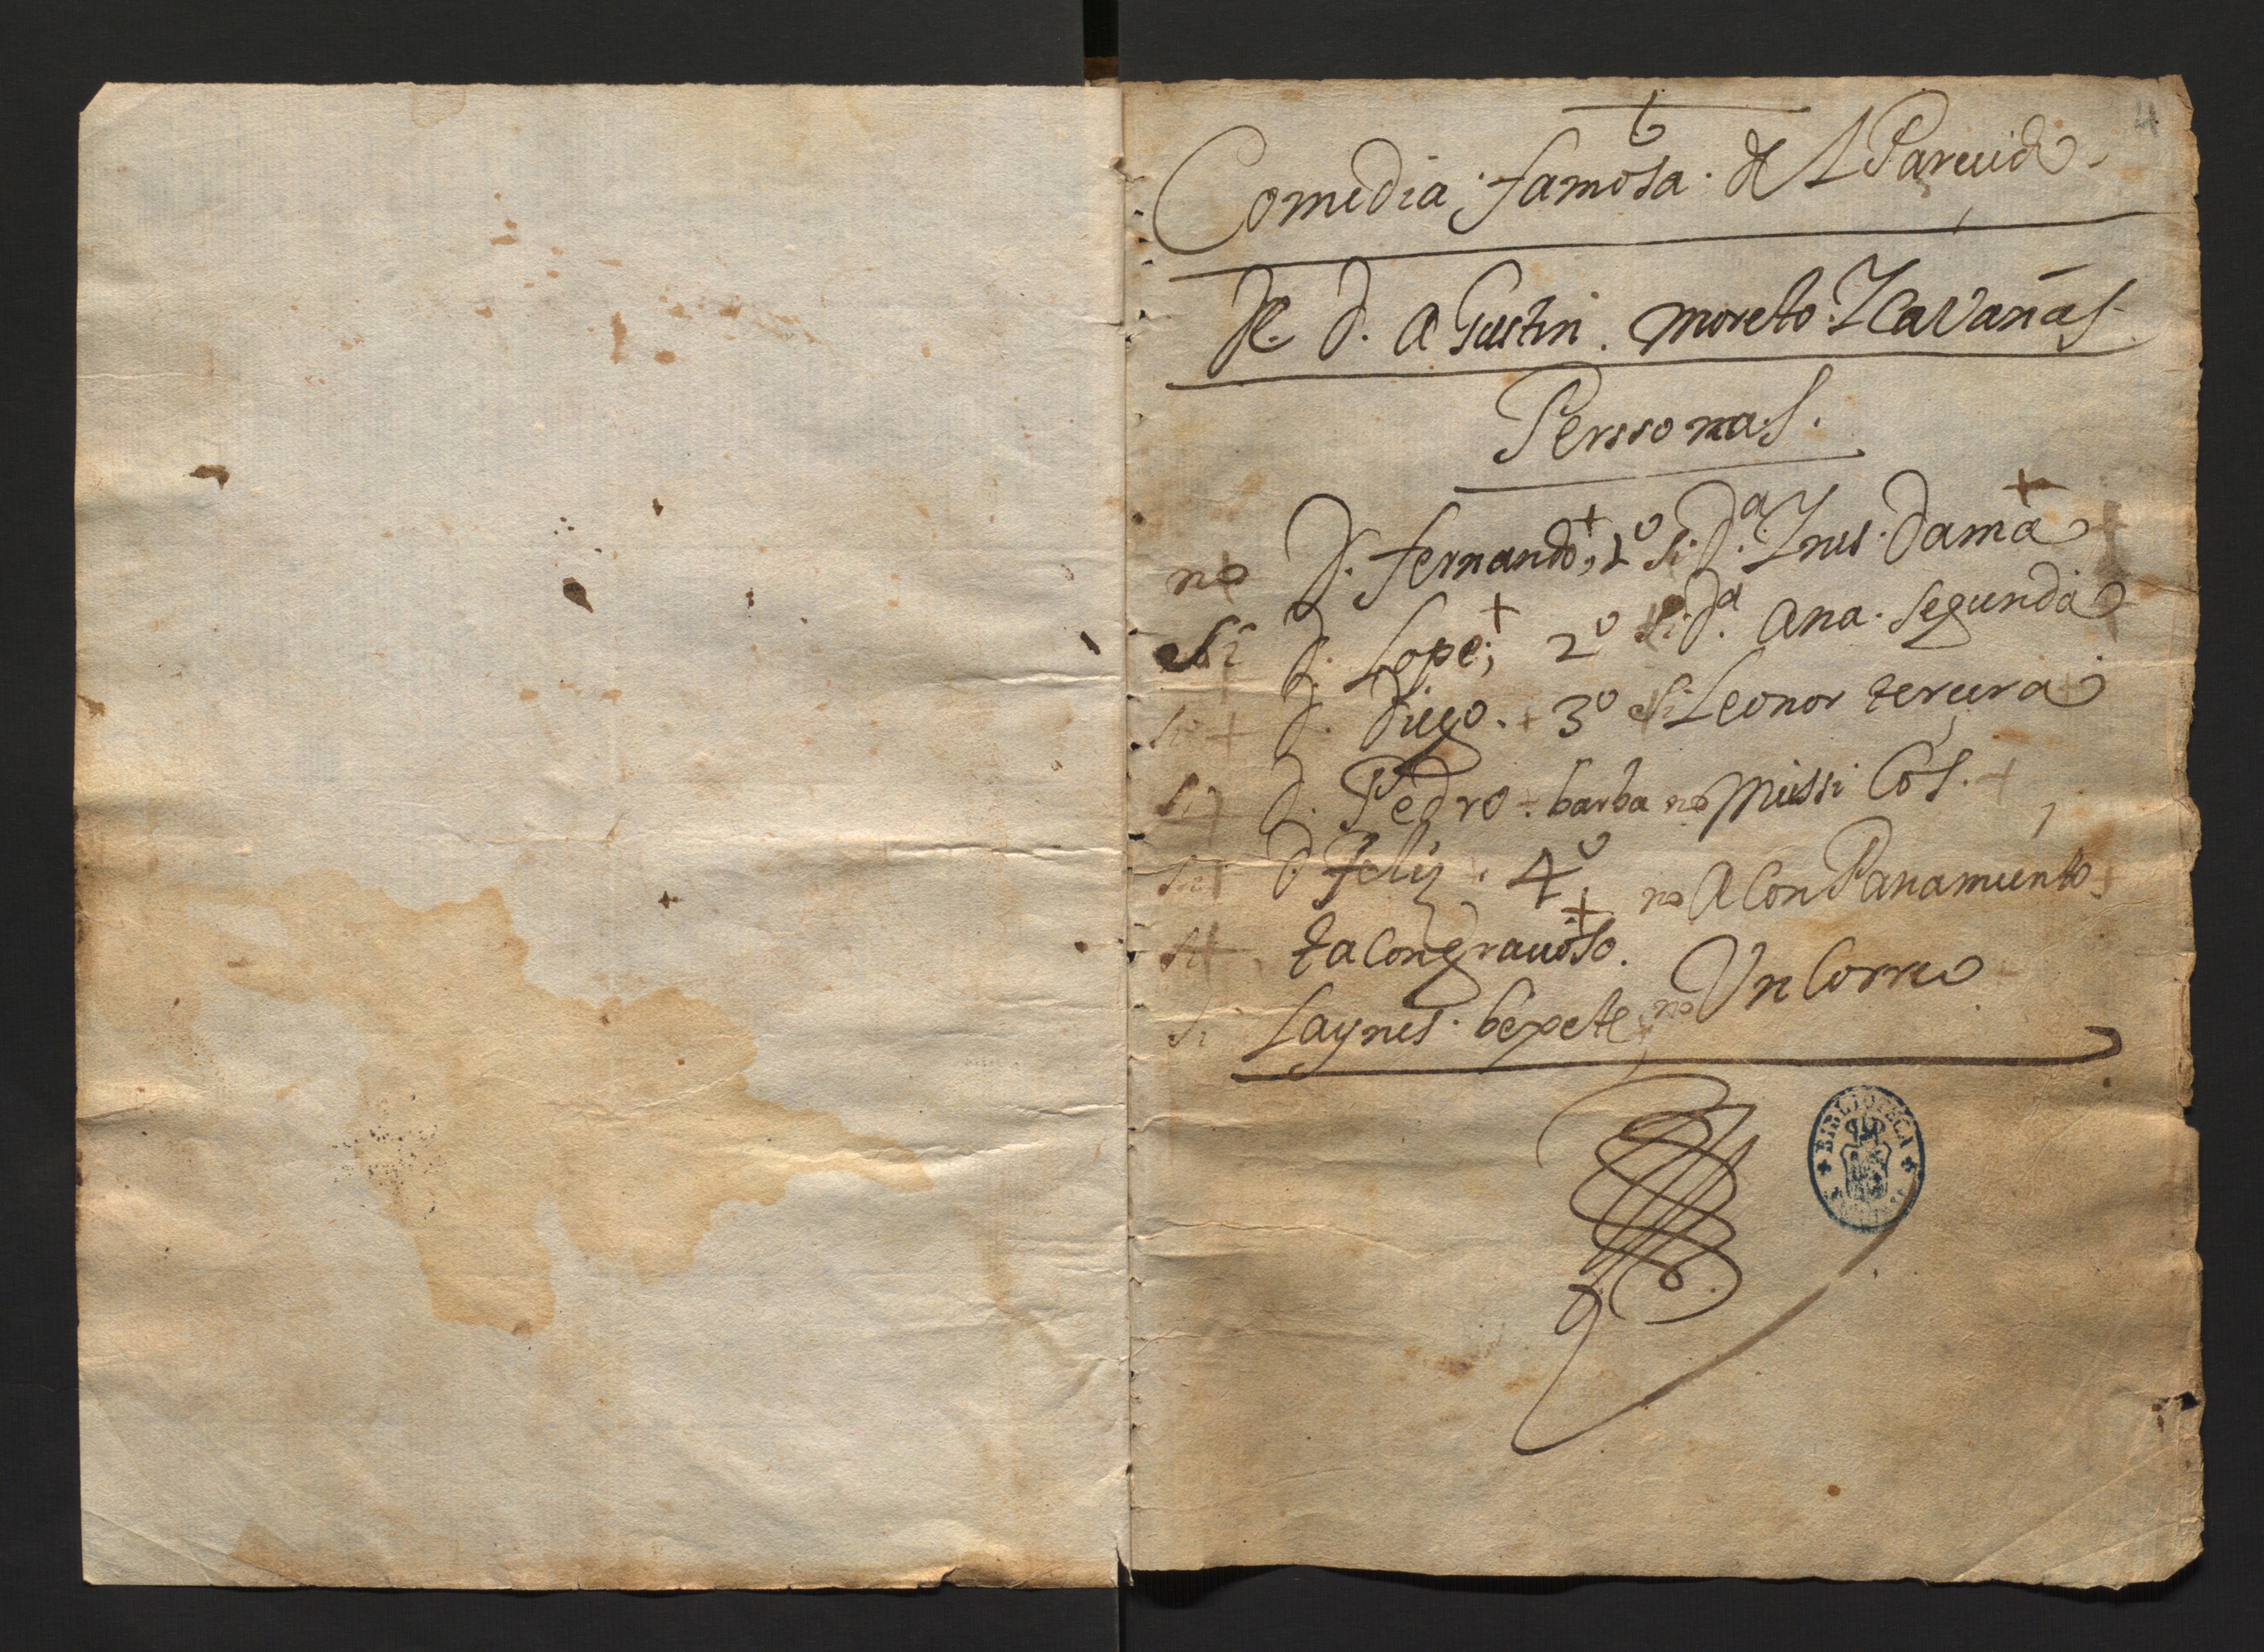 4
Comedia famosa del Parecido
De D. Agustin Moreto Y Cavañas
Perssonas.
no D. fernando + 1º si D.ª Ynes. Dama +
si D. Lope; + 2º si D.ª Ana. segunda
si + D. Diego. + 3º si Leonor tercera
si D. Pedro. barba no Mussicos. +
si D feliz. 4º no Aconpanamiento
si tacon gracioso. +
si Laynes. bexete no Vn Correo
BIBLIOTECA